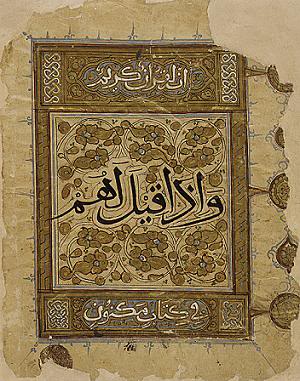 انه لقرآن كريم
واذا قيل لهم
في كتاب مكنون